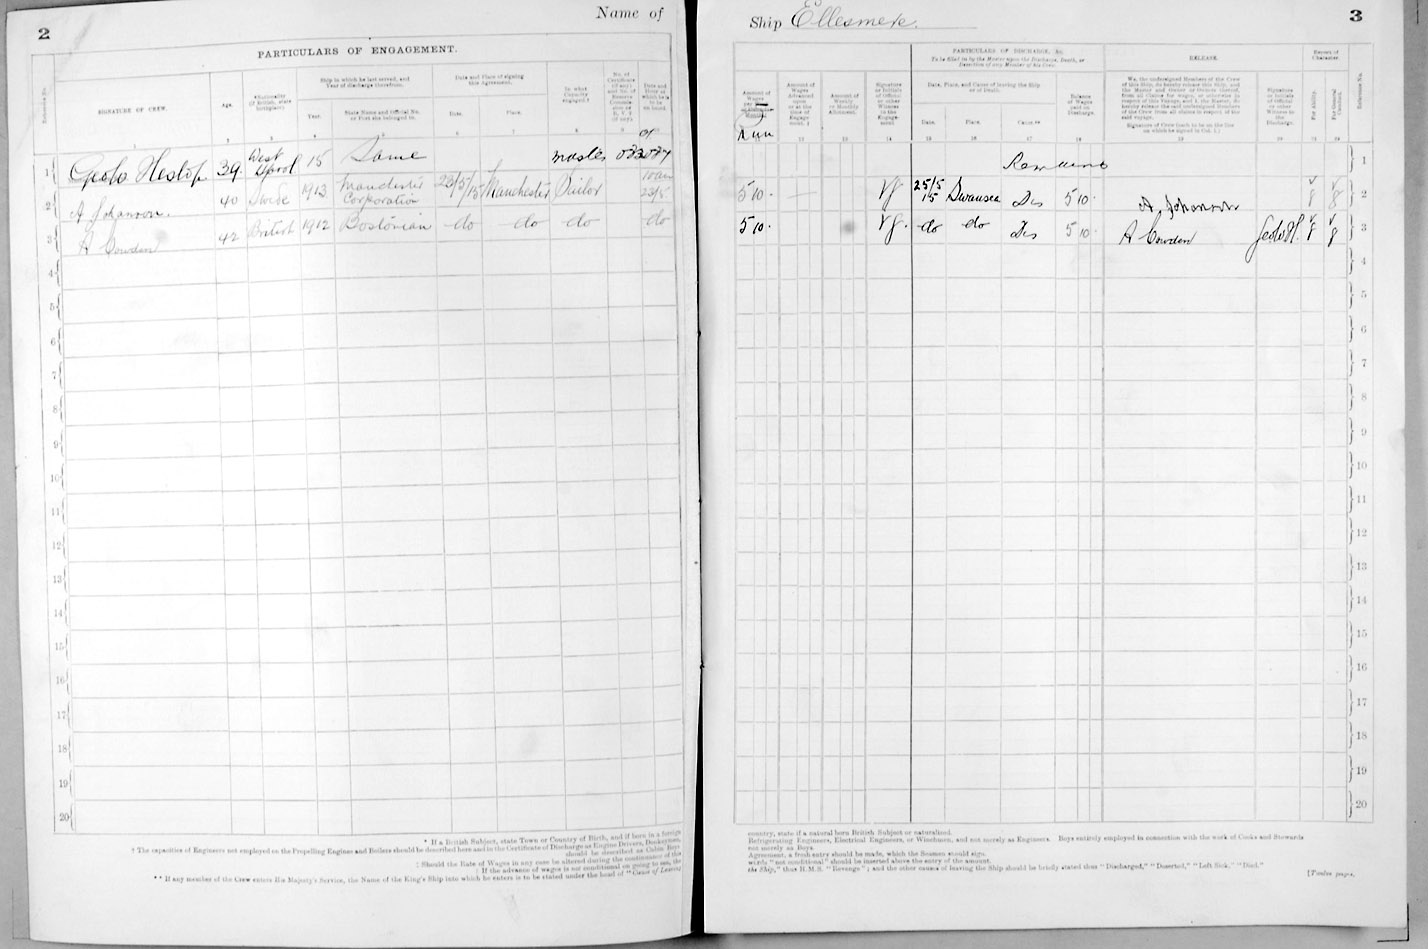 2
Name of
PARTICULARS OF ENGAGEMENT.
SIGNATURE OF CREW.
Age.
Ship in which he last served, and
Year of discharge therefrom.
Year.
State Name and Official No.
or Port she belonged to.
Date and Place of signing
this Agreement.
Date.
Place.
In what
Capacity
engaged †
1 Geo Heslop 39 West Hpool 15 Same Master 033087
10 am
2 A Johanson. 40 Swede 1913 Manchester Corporation 23/5/15 Manchester Sailor 23/5.
3 A Cowden 42 British 1912 Bostonian do do do do
4
5
6
7
8
9
10
11
12
13
14
15
16
17
18
19
20
* If a British Subject, state Town or Country of Birth, and if born in a foreign
† The capacities of Engineers not employed on the Propelling Engines and Boilers should be described here and in the Certificate of Discharge as Engine Drivers, Donkeymen,
should be described as Cabin Boys
‡ Should the Rate of Wages in any case be altered during the continuance of this
‡ If the advance of wages is not conditional on going to sea, the
** If any member of the Crew enters His Majesty's Service, the Name of the King's Ship into which he enters is to be stated under the head of "Cause of Leaving
Ship Ellesmere.
3
PARTICULARS OF DISCHARGE, &c.
To be filled in by the Master upon the Discharge, Death, or
Desertion of any Member of his Crew.
Date, Place, and Cause of leaving the Ship
or of Death.
Date.
Place.
Cause.**
Balance
of Wages
paid on
Discharge.
RELEASE.
We, the undersigned Members of the Crew
of this Ship, do hereby release this Ship, and
the Master and Owner or Owners thereof,
from all Claims for wages, or otherwise in
respect of this Voyage; and I, the Master, do
hereby release the said undersigned Members
of the Crew from all claims in respect of the
said voyage.
Signature of Crew (each to be on the line
on which he signed in Col. 1.)
Report of
Character.
For Ability.
For General
Conduct.
Reference No.
Run
Remains 1
5 10 25/5 15 Swansea Dis 5 10 A Johanson 2
5 10 do do Dis 5 10 A Cowden Geo H. 3
4
5
6
7
8
9
10
11
12
13
14
15
16
17
18
19
20
country, state if a natural born British Subject or naturalized.
Refrigerating Engineers, Electrical Engineers, or Winchmen, and not merely as Engineers. Boys entirely employed in connection with the work of Cooks and Stewards
not merely as Boys.
Agreement, a fresh entry should be made, which the Seaman should sign.
words "not conditional" should be inserted above the entry of the amount.
the Ship," thus H.M.S. "Revenge"; and the other causes of leaving the Ship should be briefly stated thus "Discharged," "Deserted," "Left Sick," "Died."
[Twelve pages.